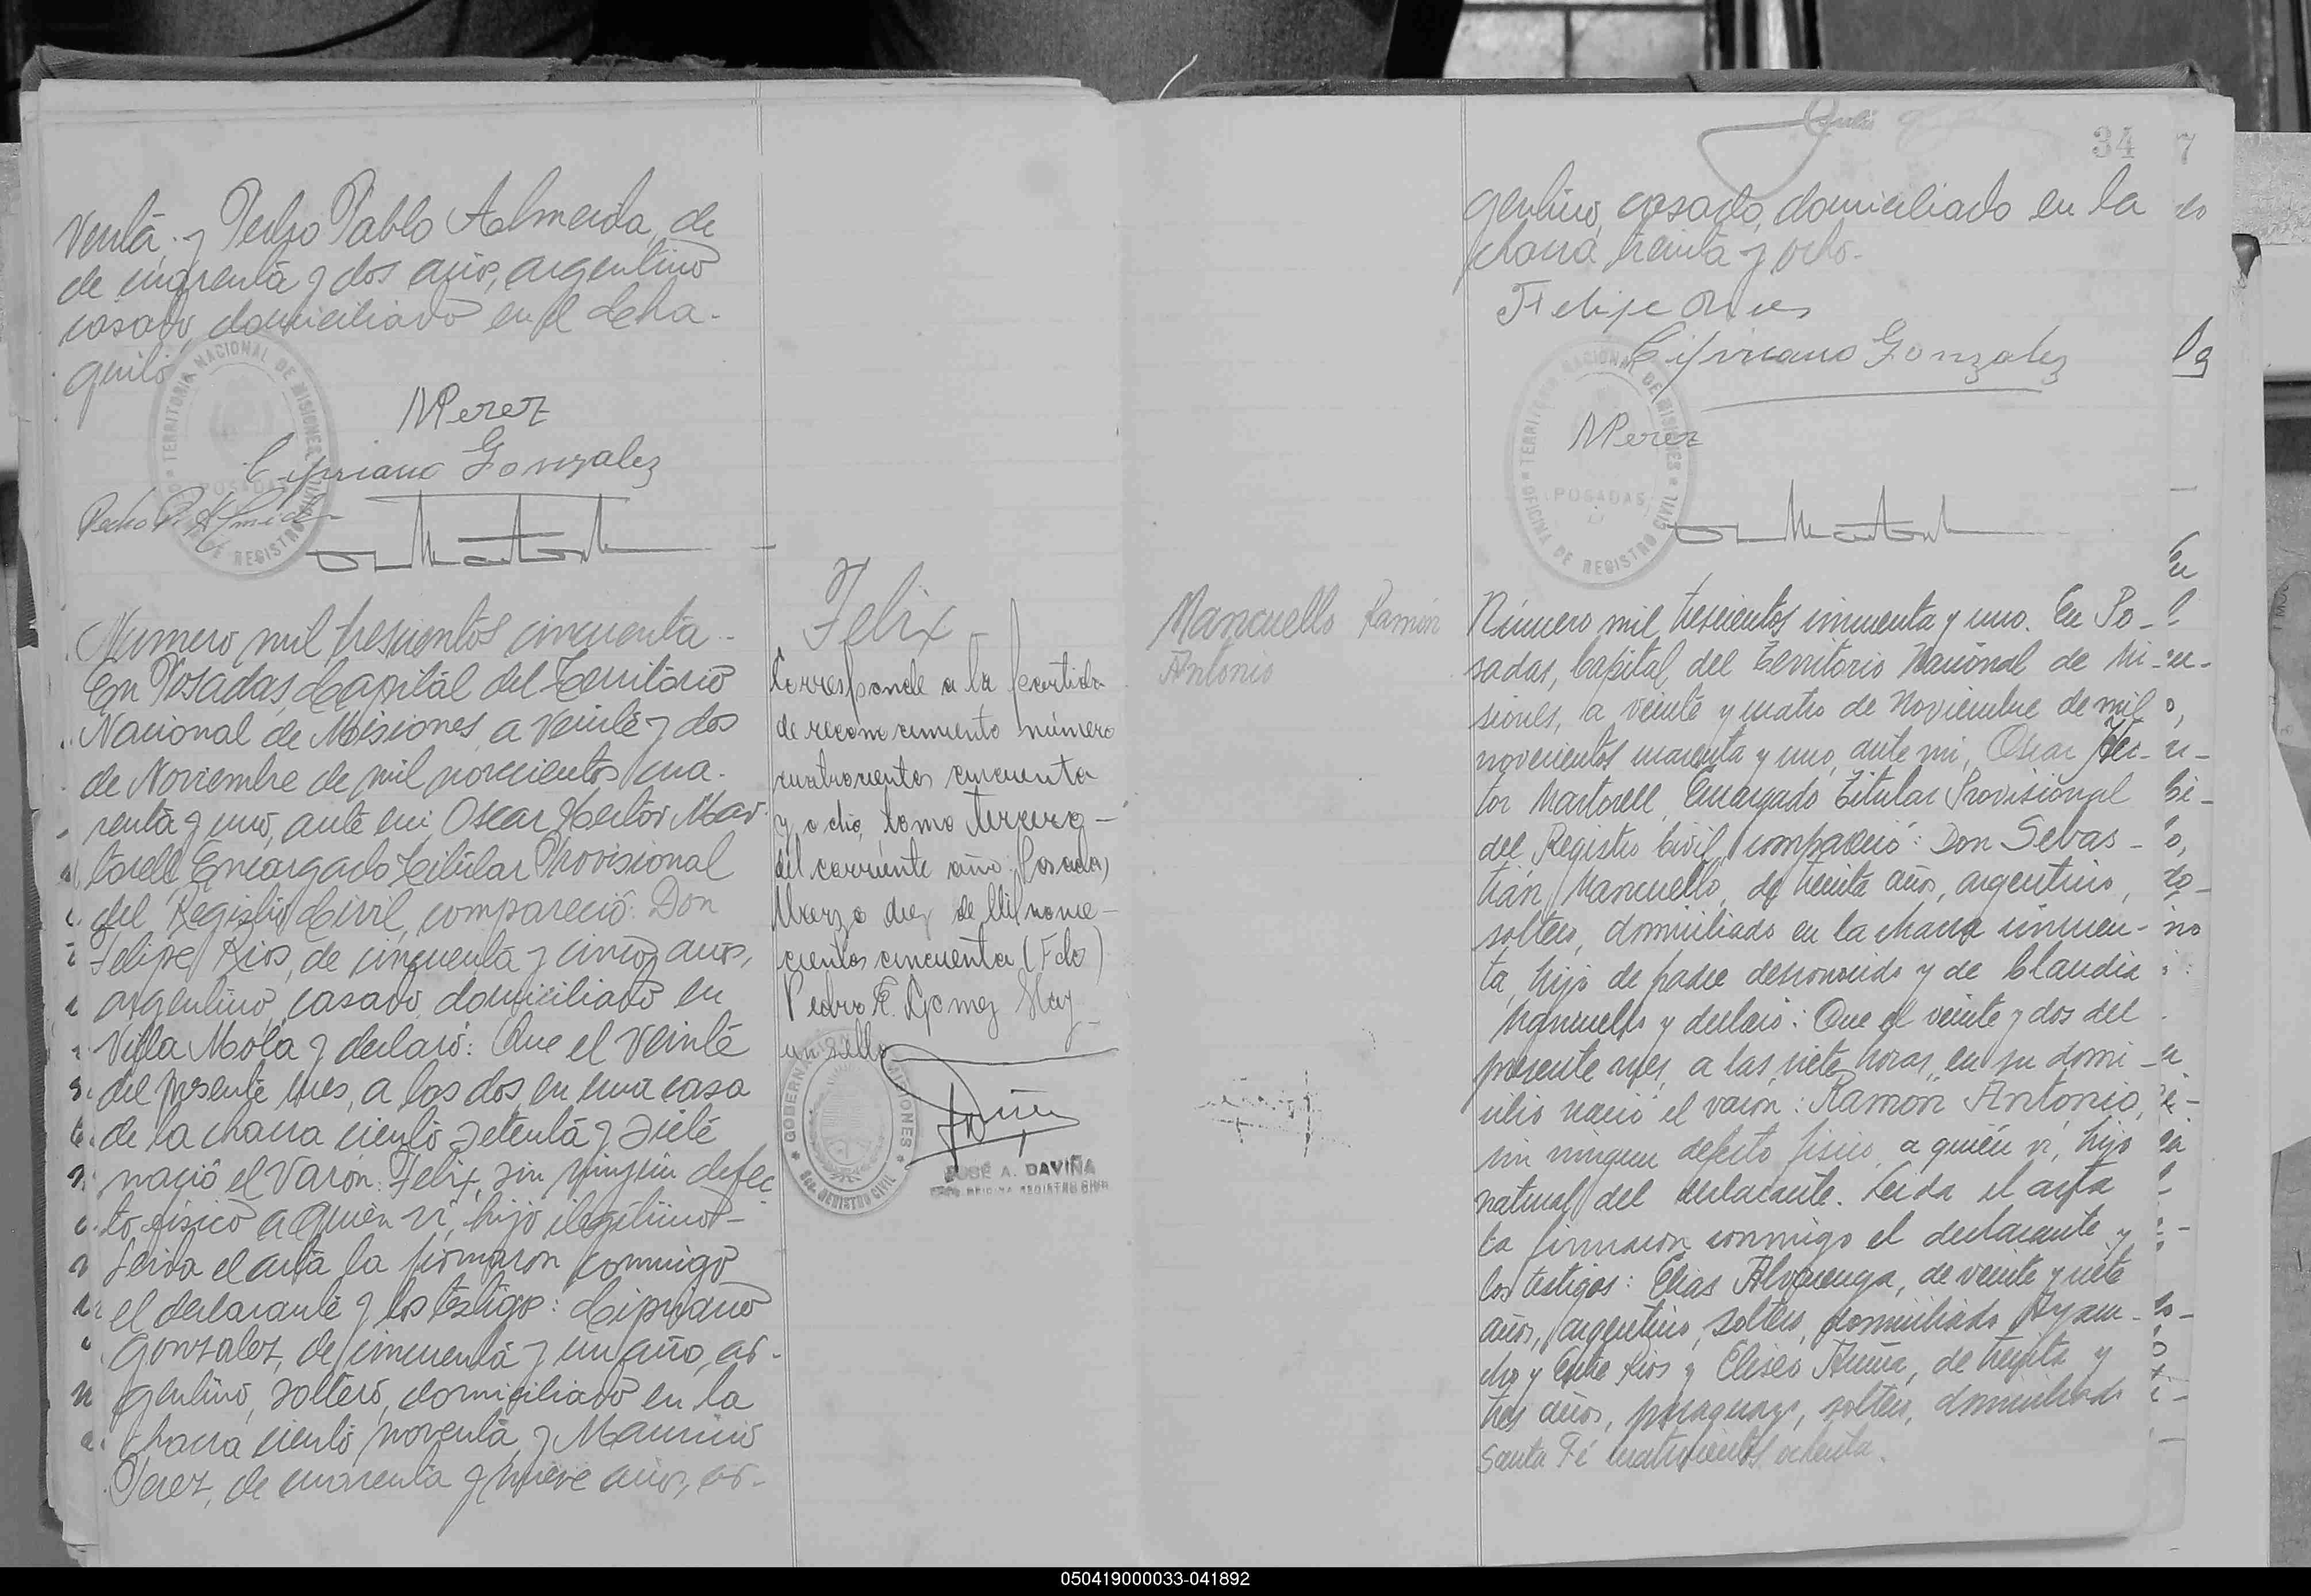 venta, y Pedro Pablo Almeida, de
de cuarenta y dos años, argentino
casado, domiciliado en el deha-
quiló
TERRITORIO NACIONAL DE MISIONES
POSADAS
OFICINA DE REGISTRO CIVIL
MPerez
Cipriano Gonzalez
Pedro P. Almeida
Numero mil trescientos cincuenta-
En Posadas, Capital del Territorio
Nacional de Misiones, a veinte y dos
de Noviembre de mil novecientos cua-
renta y uno, ante mi, Oscar Hector Mar-
torell Encargado Titular Provisional
del Registro Civil, compareció: Don
Felipe Rios, de cincuenta y cinco años,
argentino, casado, domiciliado en
Villa Mola y declaró: Que el veinte
del presente mes, a las dos, en una casa
de la chacra ciento setenta y siete
nació el varón: Felix, sin ningún defec
to fisico a quien ví, hijo ilegítimo-
Leida el acta la firmaron conmigo
el declarante y los testigos: Cipriano
Gonzalez, de cincuenta y un año, ar-
gentino, soltero, domiciliado en la
chacra ciento noventa, y Mauricio
Perez, de cuarenta y nueve años, ar-
Felix-
Corresponde a la partida
de reconocimiento número
cuatrocientos cincuenta
y ocho, tomo tercero-
del corriente año. Posadas,
Marzo diez de Mil nove-
cientos cincuenta (Fdo)
Pedro E. Gomez Hay
un sello
REGISTRO CIVIL
JOSÉ A. DAVIÑA
34
7
gentino, casado, domiciliado en la
chacra treinta y ocho-
Felipe Rios
Cipriano Gonzalez
TERRITORIO NACIONAL DE MISIONES
POSADAS
OFICINA DE REGISTRO CIVIL
MPerez
Mancuello Ramón
Antonio
Número mil trescientos cincuenta y uno. En Po-
sadas, Capital del Territorio Nacional de Mi-
siones, a veinte y cuatro de Noviembre de mil
novecientos cuarenta y uno, ante mi, Oscar Hec-
tor Martorell, Encargado Titular Provisional
del Registro Civil, compareció: Don Sebas-
tián Mancuello, de treinta años, argentino,
soltero, domiciliado en la chacra cincuen-
ta, hijo de padre desconocido y de Claudia
Mancuello y declaró: Que el veinte y dos del
presente mes, a las siete horas, en su domi-
cilio nació el varón: Ramón Antonio,
sin ningun defecto fisico, a quién ví, hijo
natural del declarante. Leida el acta
la firmaron conmigo el declarante y
los testigos: Elias Alvarenga, de veinte y siete
años, argentino, soltero, domiciliado Ayacu-
cho y Entre Rios y Eliseo Acuña, de treinta y
tres años, paraguayo, soltero, domiciliado
Santa Fé cuatrocientos ochenta.
050419000033-041892